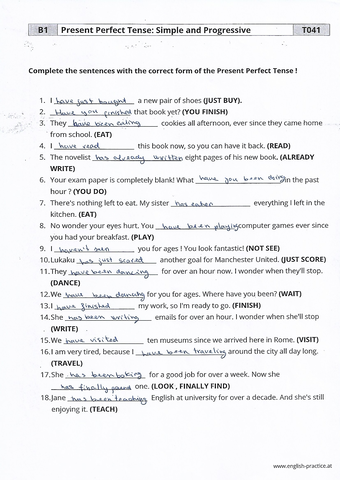 B1 Present Perfect Tense: Simple and Progressive T041
Complete the sentences with the correct form of the Present Perfect Tense !
1. I have just bought a new pair of shoes (JUST BUY).
2. Have you finished that book yet? (YOU FINISH)
3. They have been eating cookies all afternoon, ever since they came home
from school. (EAT)
4. I have read this book now, so you can have it back. (READ)
5. The novelist has already written eight pages of his new book. (ALREADY
WRITE)
6. Your exam paper is completely blank! What have you been doing in the past
hour ? (YOU DO)
7. There's nothing left to eat. My sister has eaten everything I left in the
kitchen. (EAT)
8. No wonder your eyes hurt. You have been playing computer games ever since
you had your breakfast. (PLAY)
9. I haven't seen you for ages ! You look fantastic! (NOT SEE)
10. Lukaku has just scored another goal for Manchester United. (JUST SCORE)
11. They have been dancing for over an hour now. I wonder when they'll stop.
(DANCE)
12. We have been for you for ages. Where have you been? (WAIT)
13. I have finished my work, so I'm ready to go. (FINISH)
14. She has been writing emails for over an hour. I wonder when she'll stop
(WRITE)
15. We have visited ten museums since we arrived here in Rome. (VISIT)
16. I am very tired, because I have been traveling around the city all day long.
(TRAVEL)
17. She has been for a good job for over a week. Now she
has finally found one. (LOOK , FINALLY FIND)
18. Jane has been teaching English at university for over a decade. And she's still
enjoying it. (TEACH)
www.english-practice.at